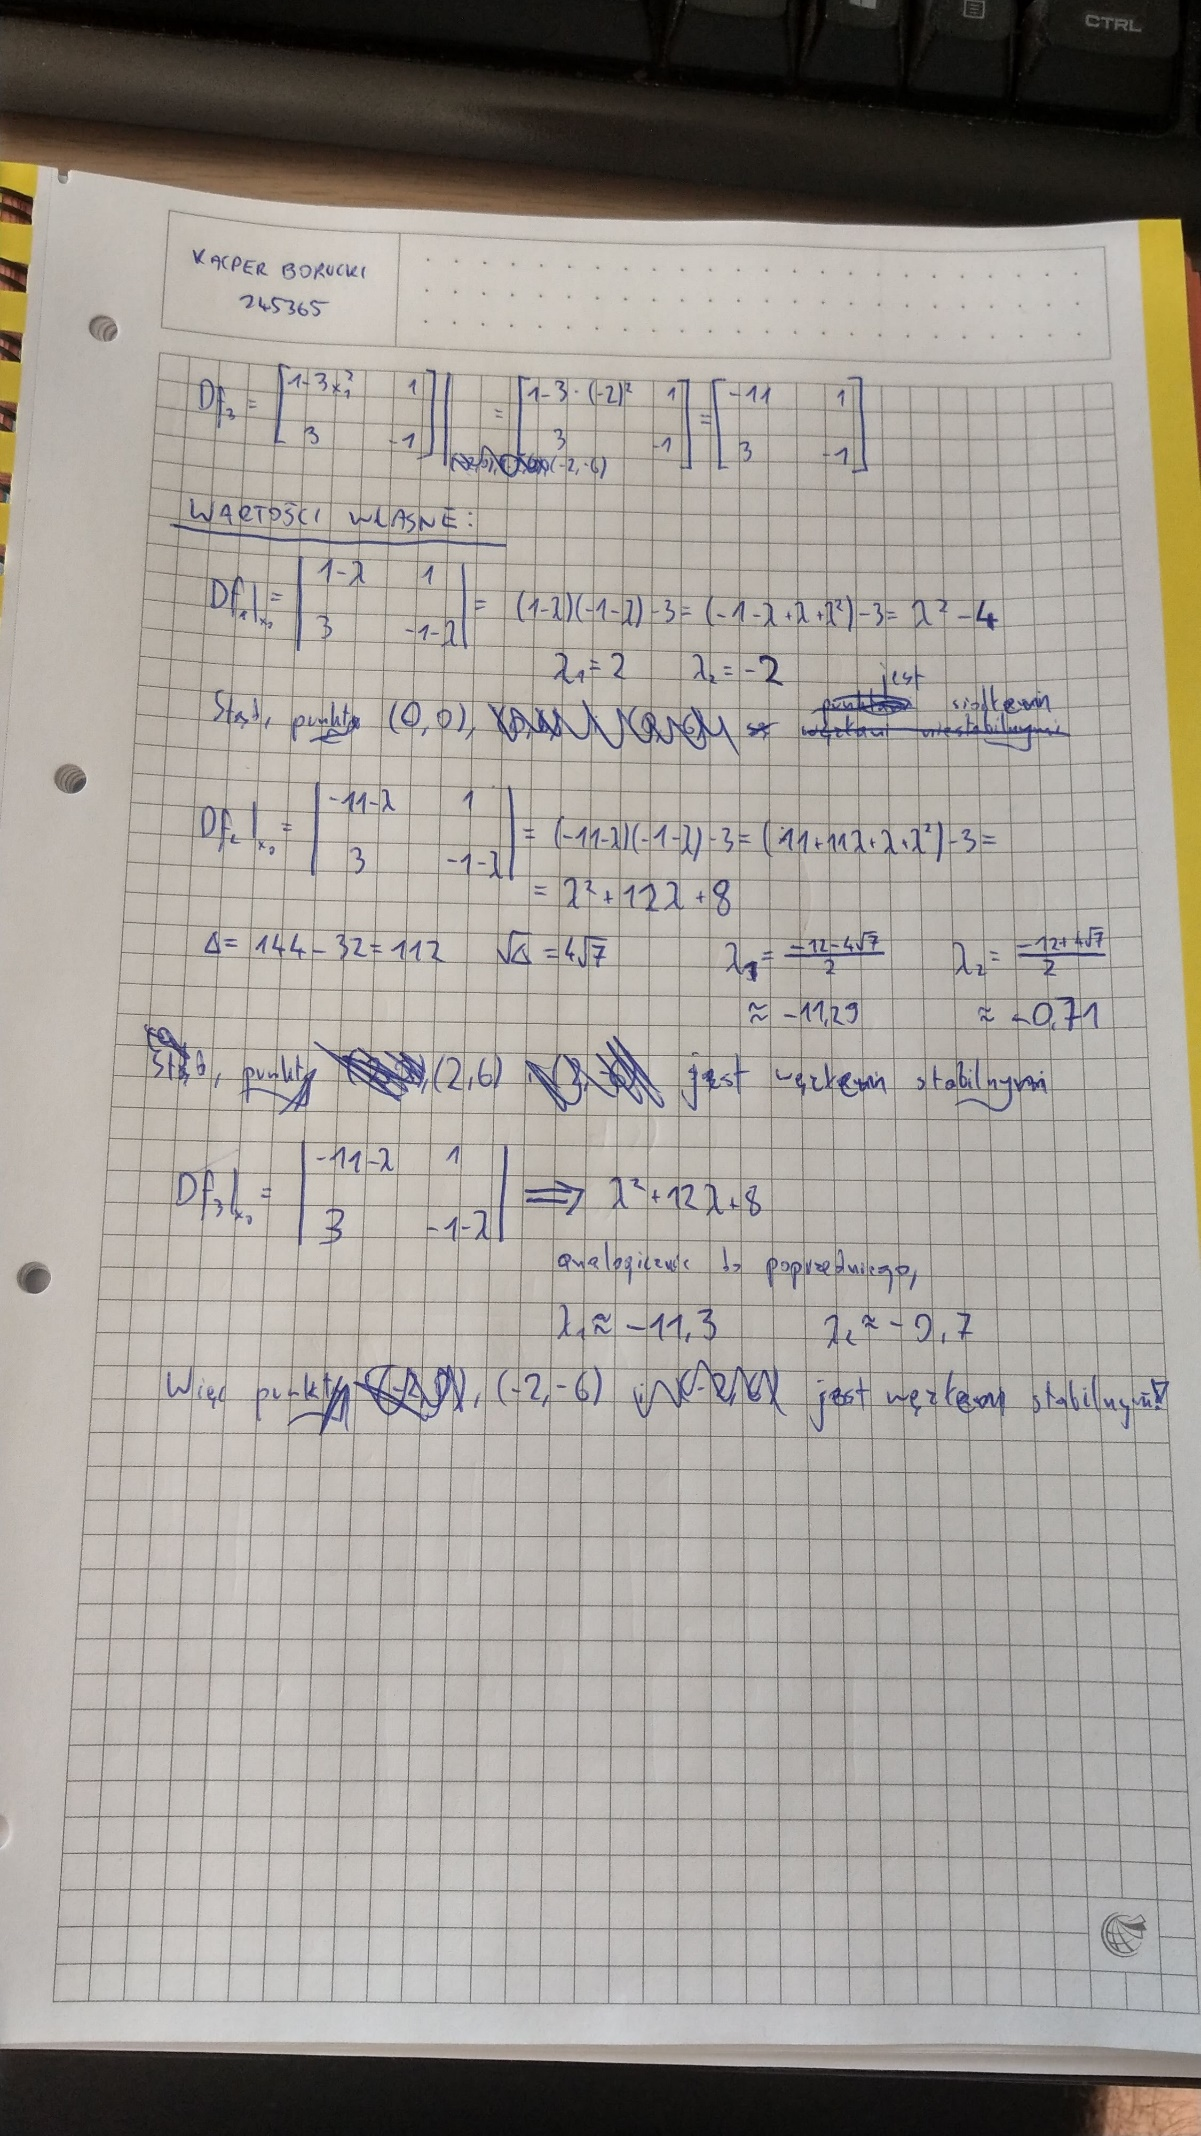 CTRL
KACPER BORUCKI
245365
Df₃ = [1-3x₁² 1; 3 -1]| (-2,-6) = [1-3·(-2)² 1; 3 -1] = [-11 1; 3 -1]
WARTOŚCI WŁASNE:
Df₁|ₓ₀ = |1-λ 1; 3 -1-λ| = (1-λ)(-1-λ)-3 = (-1-λ+λ+λ²)-3 = λ²-4
λ₁=2 λ₂=-2
Stąd, punkt (0,0), jest siodłem
Df₂|ₓ₀ = |-11-λ 1; 3 -1-λ| = (-11-λ)(-1-λ)-3 = (11+11λ+λ+λ²)-3 =
= λ²+12λ+8
Δ= 144-32=112 √Δ=4√7 λ₁= (-12-4√7)/2 λ₂= (-12+4√7)/2
≈ -11,29 ≈ -0,71
Stąd, punkt (2,6) jest węzłem stabilnym
Df₃|ₓ₀ = |-11-λ 1; 3 -1-λ| ⟹ λ²+12λ+8
analogicznie do poprzedniego,
λ₁≈ -11,3 λ₂≈ -0,7
Więc punkt (-2,-6) jest węzłem stabilnym